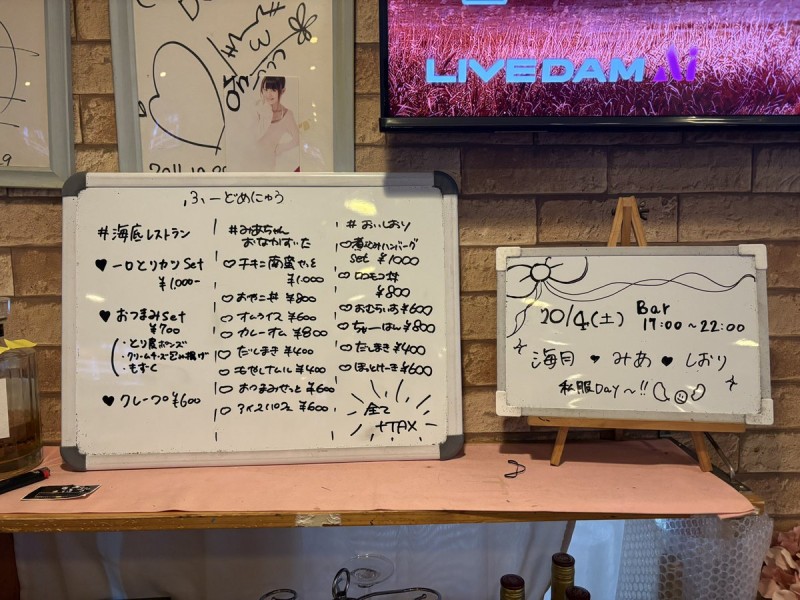 LIVEDAM Ai
ふーどめにゅう
#海底レストラン
♥一口とりカツ Set
¥1,000-
♥おつまみset
¥700
・とり皮ポンズ
・クリームチーズ包み揚げ
・もずく
♥クレープ¥600
#みあちゃん
おなかすいた
♡チキン南蛮せっと
¥1,000
♡おやこ丼 ¥800
♡オムライス ¥600
♡カレーオム ¥800
♡だしまき ¥400
♡もやしナムル ¥400
♡おつまみせっと ¥600
♡アイスパフェ ¥600
#おいしおり
♡煮込みハンバーグ
set ¥1000
♡ロコモコ丼
¥800
♡おむらいす¥600
♡ちゃーはん¥800
♡だしまき¥400
♡ほっとけーき¥600
全て
+TAX
10/4(土) Bar
17:00~22:00
海月 ♥ みあ ♥ しおり
私服Day~!!